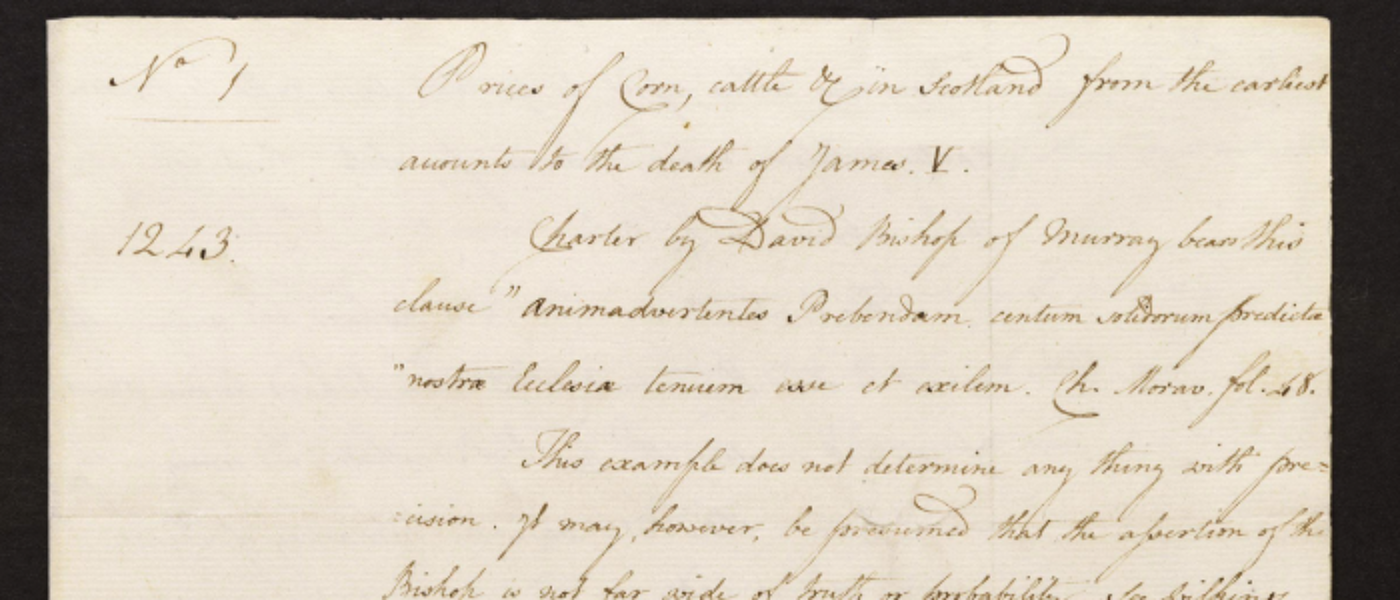 No 1
Prices of Corn, cattle &c in Scotland from the earliest
acounts to the death of James. V.
1243.
Charter by David Bishop of Murray bears this
clause "animadvertentes Prebendam centum solidorum predictæ
"nostræ Ecclesiæ tenuem esse et exilem. Ch. Morav. fol. 48.
This example does not determine any thing with pre=
=cision. It may, however, be presumed that the assertion of the
Bishop is not far wide of truth or probability. See Wilkins